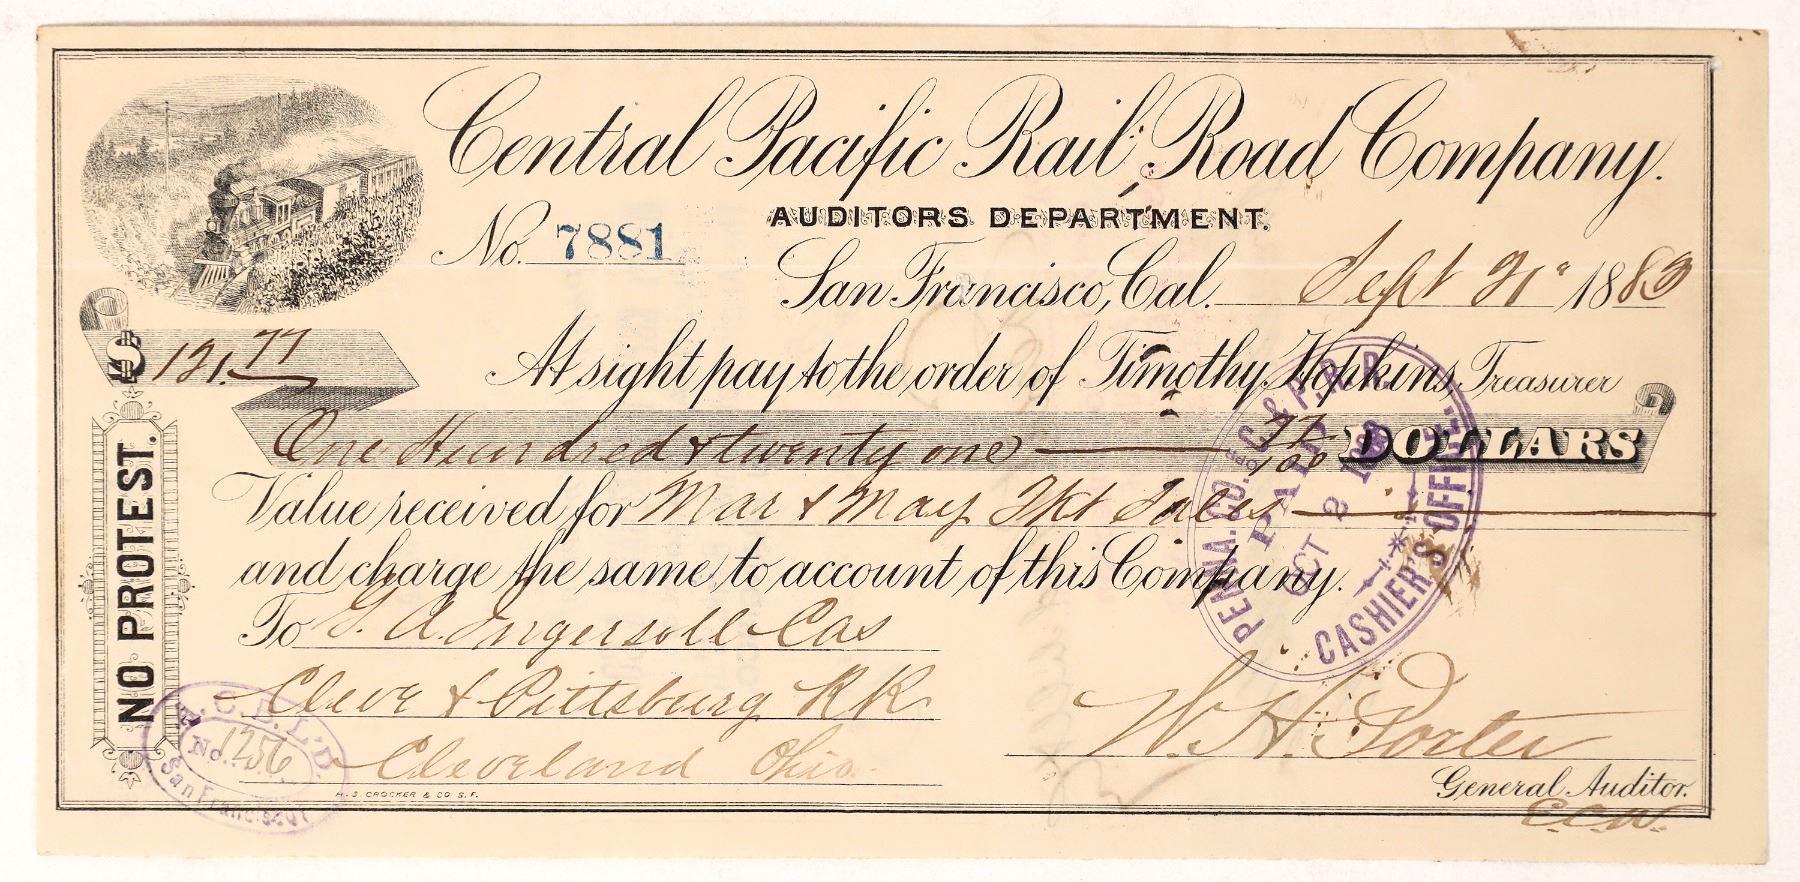 Central Pacific Rail Road Company.
AUDITORS DEPARTMENT.
No. 7881
San Francisco, Cal. Sept 21" 1883
$ 121.77
At sight pay to the order of Timothy Hopkins, Treasurer
One Hundred & twenty one 77/100 DOLLARS
Value received for Mar & May Tkt Sales
and charge the same to account of this Company.
To G. A. Ingersoll Cas
Cleve & Pittsburg RR
Cleveland Ohio
W. H. Porter
General Auditor.
E.C.W.
NO PROTEST.
H. S. CROCKER & CO S. F.
PENNA. CO. C. & P. R. R.
PAID
OCT 2 1883
CASHIER'S OFFICE.
C. B. L'D.
No. 1256
San Francisco